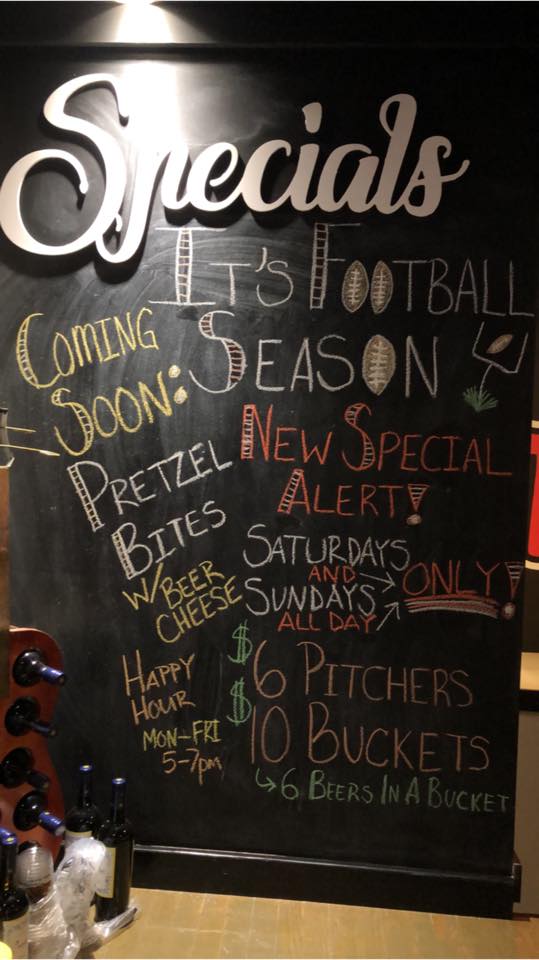 Specials
IT'S FOOTBALL
SEASON
COMING
SOON:
PRETZEL
BITES
W/BEER
CHEESE
NEW SPECIAL
ALERT!
SATURDAYS
AND
SUNDAYS
ALL DAY
ONLY!
$6 PITCHERS
$10 BUCKETS
6 BEERS IN A BUCKET
HAPPY
HOUR
MON-FRI
5-7pm